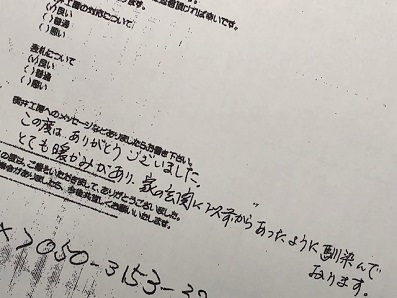 工房の対応について
(√)良い
( )普通
( )悪い
表札について
(√)良い
( )普通
( )悪い
工房へのメッセージなどありましたらお書き下さい。
この度は ありがとう ございました。
とても 暖かみがあり、家の玄関に以前からあったように馴染んで
おります。
の度は、ご縁をいただきまして、ありがとうございました。
機会がありましたら、今後共宜しくお願いいたします。
050-3153-